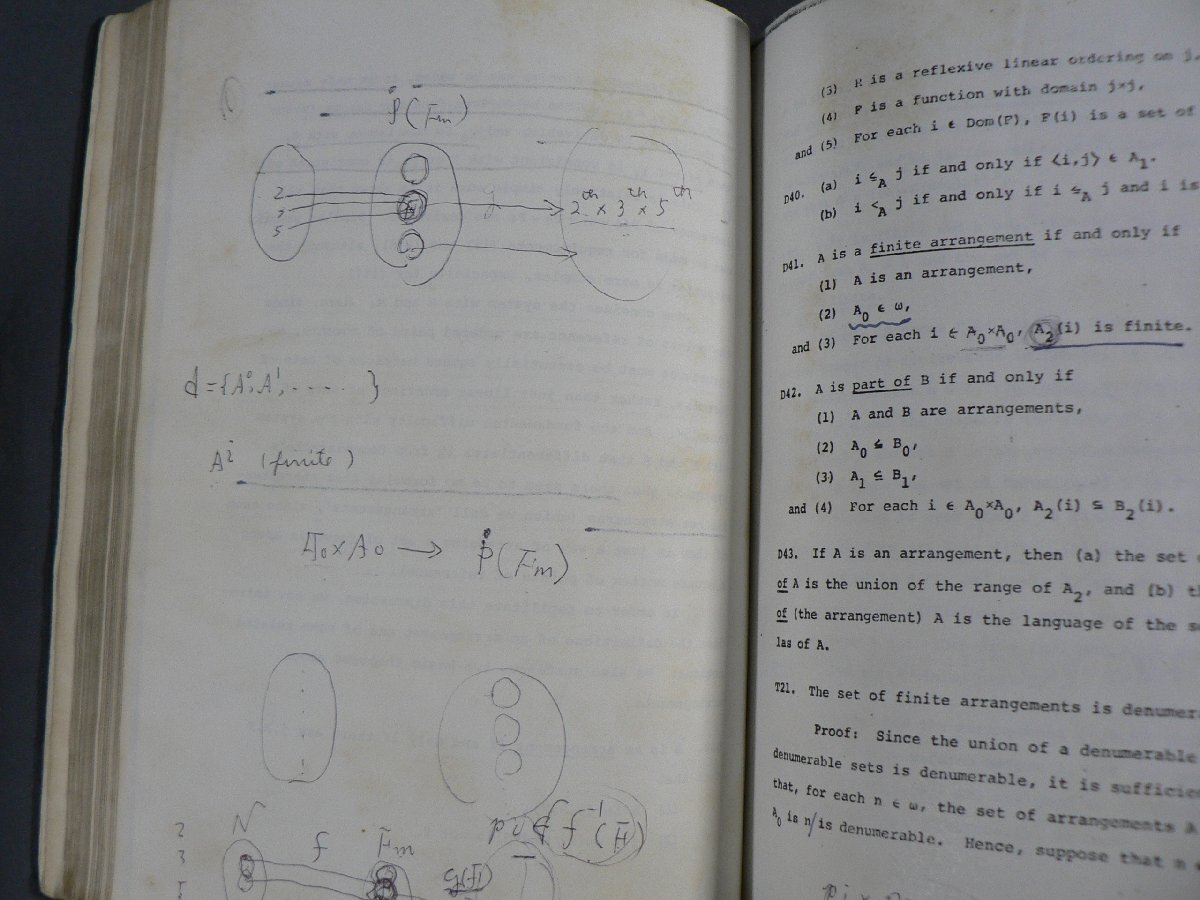 𝒫(Fm)
2
3
5
g
2^th × 3^th × 5^th
d = {A⁰, A¹, ..... }
Aⁱ (finite)
A₀ × A₀ → 𝒫(Fm)
2
3
N
f
Fm
(3) R is a reflexive linear ordering on j,
(4) F is a function with domain j×j,
and (5) For each i ϵ Dom(F), F(i) is a set of
D40. (a) i ≤_A j if and only if ⟨i,j⟩ ϵ A₁.
(b) i <_A j if and only if i ≤_A j and i is
D41. A is a finite arrangement if and only if
(1) A is an arrangement,
(2) A₀ ϵ ω,
and (3) For each i ϵ A₀×A₀, A₂(i) is finite.
D42. A is part of B if and only if
(1) A and B are arrangements,
(2) A₀ ⊆ B₀,
(3) A₁ ⊆ B₁,
and (4) For each i ϵ A₀×A₀, A₂(i) ⊆ B₂(i).
D43. If A is an arrangement, then (a) the set
of A is the union of the range of A₂, and (b)
of (the arrangement) A is the language of the
las of A.
T21. The set of finite arrangements is
Proof: Since the union of a denumerable
denumerable sets is denumerable, it is
that, for each n ϵ ω, the set of arrangements A
A₀ is n/is denumerable. Hence, suppose that n